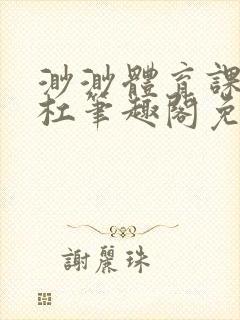 渺渺體育課
杜筆趣閣免
謝麗珠